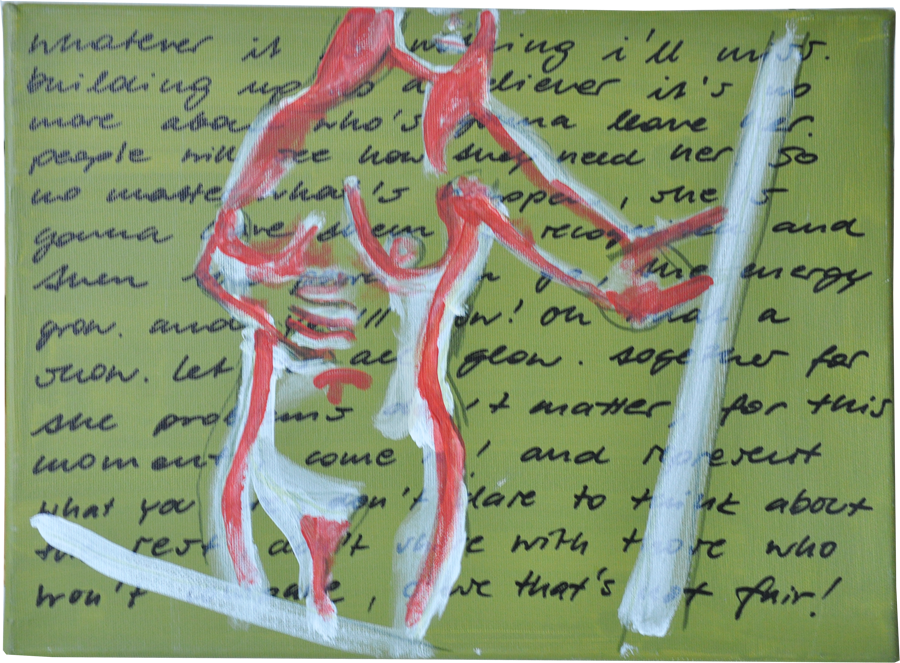 whatever it nothing i'll miss.
building up to a believer it's no
more about who's gonna leave her.
people will see how they need her so
no matter what's hoped, she's
gonna give them recognized and
then the power on go, the energy
grow. and you'll know! oh what a
show. let all glow. together for
the problems don't matter, for this
moment come on! and represent
what you don't dare to think about
the rest don't share with those who
won't share, cause that's not fair!